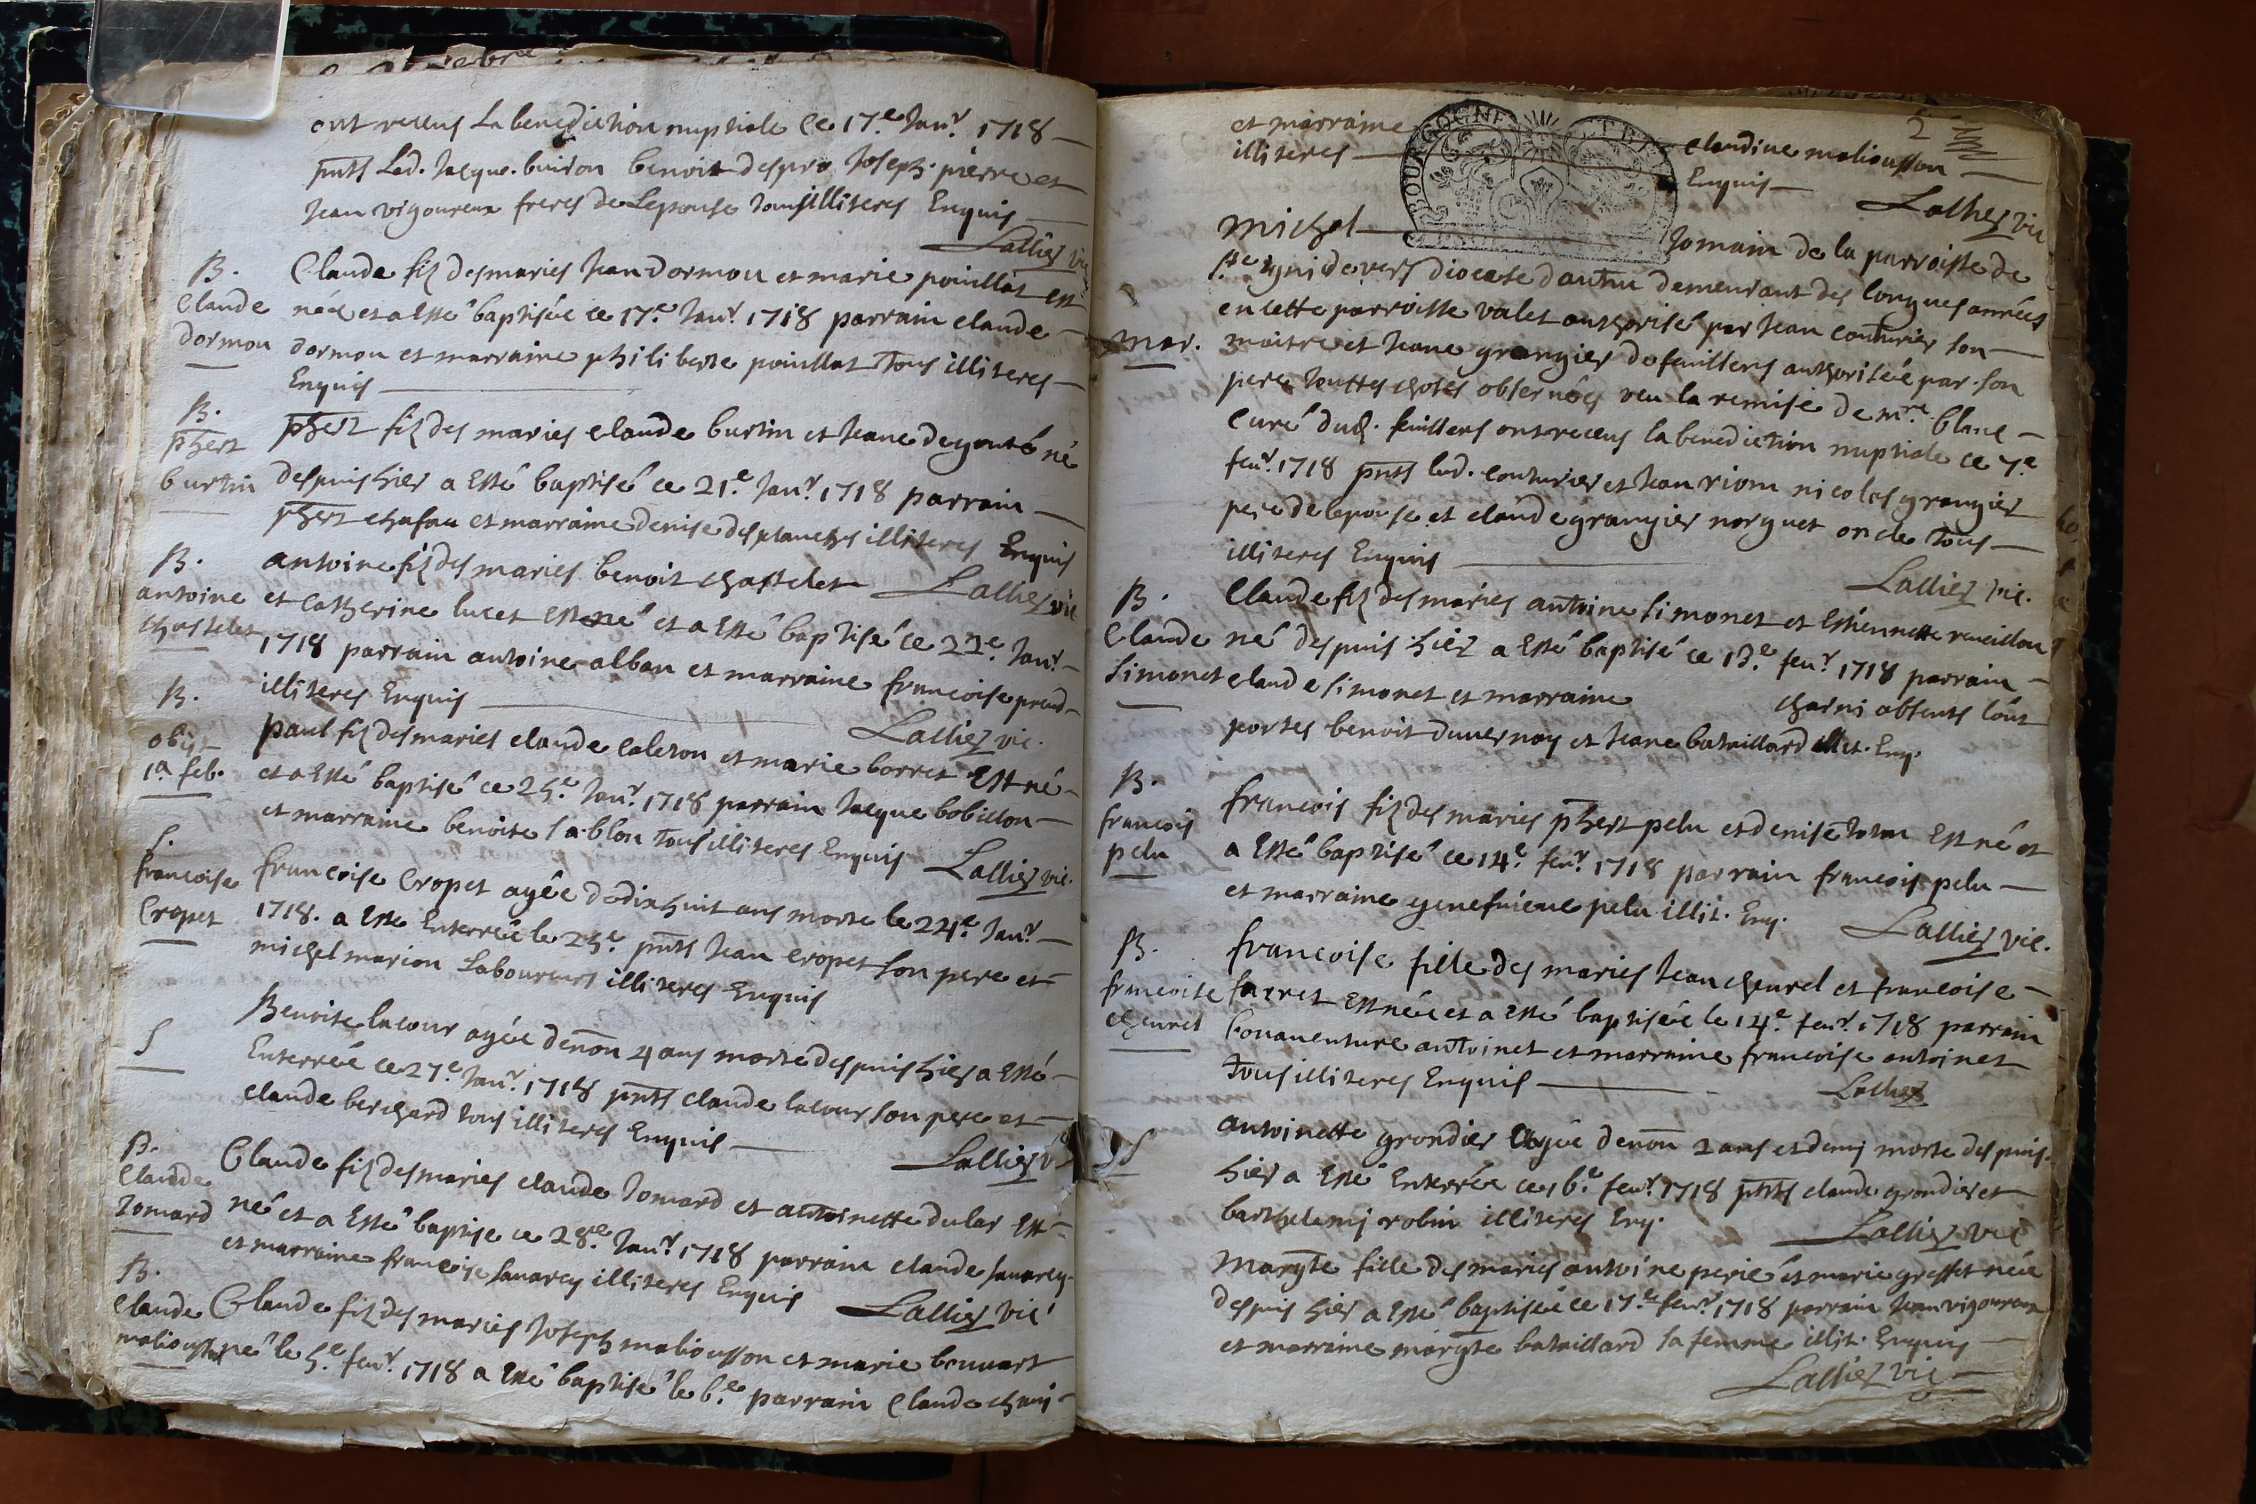 ont receus la benediction nuptiale ce 17.e Janr. 1718
pnts led. Jacque buiron benoit despra Joseph pierre et
Jean vigoureux freres de Lepouse tous illiteres Enquis
Lallier vic
B.
Claude
dormon
Claude fiz des maries Jean dormon et marie pouillat est
née et a esté baptisée ce 17.e Janr. 1718 parrain claude
dormon et marraine philiberte pouillat tous illiteres
Enquis
B.
phert
burtin
phert fiz des maries claude burtin et Jeane degouté né
despuis hier a Esté baptisé ce 21.e Janr. 1718 parrain
phert chafau et marraine denise desplanches illiteres Enquis
Lallier vic
B.
antoine
chastelet
antoine fiz des maries benoit chastelet
et Catherine lucet est né et a esté baptisé ce 22.e Janr.
1718 parrain antoine alban et marraine francoise prud
illiteres Enquis
Lallier vic.
B.
obijt
1a feb.
paul fiz des maries claude caleron et marie borret Est né
et a Esté baptisé ce 25.e Janr. 1718 parrain Jacque bobillon
et marraine benoite sablon tous illiteres Enquis
Lallier vic.
S.
francoise
Cropet
francoise Cropet agée de dixhuit ans morte le 24.e Janr.
1718. a Esté Enterrée le 25.e pnts Jean cropet son pere et
michel marion Laboureurs illiteres Enquis
S
Benoite lacour agée denon 4 ans morte despuis hier a Esté
Enterrée ce 27.e Janr. 1718 pnts claude lacour son pere et
claude berchard tous illiteres Enquis
Lallier v
B.
Claude
Jomard
Claude fiz des maries claude Jomard et antoinette dular Est
né et a Esté baptise ce 28.e Janr. 1718 parrain claude sauarcy
et marraine francoise sauarcy illiteres Enquis
Lallier vic
B.
Claude
maliousson
Claude fiz des maries Joseph maliousson et marie bouuart
né le 5.e feur. 1718 a Esté baptisé le 6.e parrain Claude
2
et marraine claudine maliousson
illiteres Enquis
Lallier vic
BOURGOGNE
mar.
michel Jomain de la parroisse de
diocese dautun demeurant des longues années
en cette parroisse valet authorisé par Jean couturier son
maitre et Jeane grangier de feuillens authorisée par son
pere touttes choses obseruées veu la remise de mre. blanc
Curé dud. feuillens ont receus la benediction nuptiale ce 7.e
feur. 1718 pnts led. couturier et Jean riom nicolas grangier
pere de lepouse et claude grangier norguet oncle tous
illiteres Enquis
Lallier vic.
B.
Claude
Simonet
Claude fiz des maries antoine simonet et Estiennette reueillon
né despuis hier a Esté baptisé ce 13.e feur. 1718 parrain
claude simonet et marraine charni absents sont
portés benoit duuernay et Jeane bataillard illit. Enq.
B.
francois
pelu
francois fiz des maries phert pelu et denise Est né et
a Esté baptisé ce 14.e feur. 1718 parrain francois pelu
et marraine geneuieue pelu illit. Enq.
Lallier vic.
B.
francoise
cheurel
francoise fille des maries Jean cheurel et francoise
farret Est née et a Esté baptisée le 14.e feur. 1718 parrain
bonauenture antoinet et marraine francoise antoinet
tous illiteres Enquis
Lallier
S
antoinette grondier agée denon 2 ans et demj morte despuis
hier a Esté Enterrée ce 16.e feur. 1718 pnts claude grondier et
barthelemj robin illiteres Enq.
Lallier vic
Margte fille des maries antoine perié et marie greffet née
despuis hier a Esté baptisée ce 17.e feur. 1718 parrain Jean vigoureux
et marraine margte bataillard sa femme illit. Enquis
Lallier vic